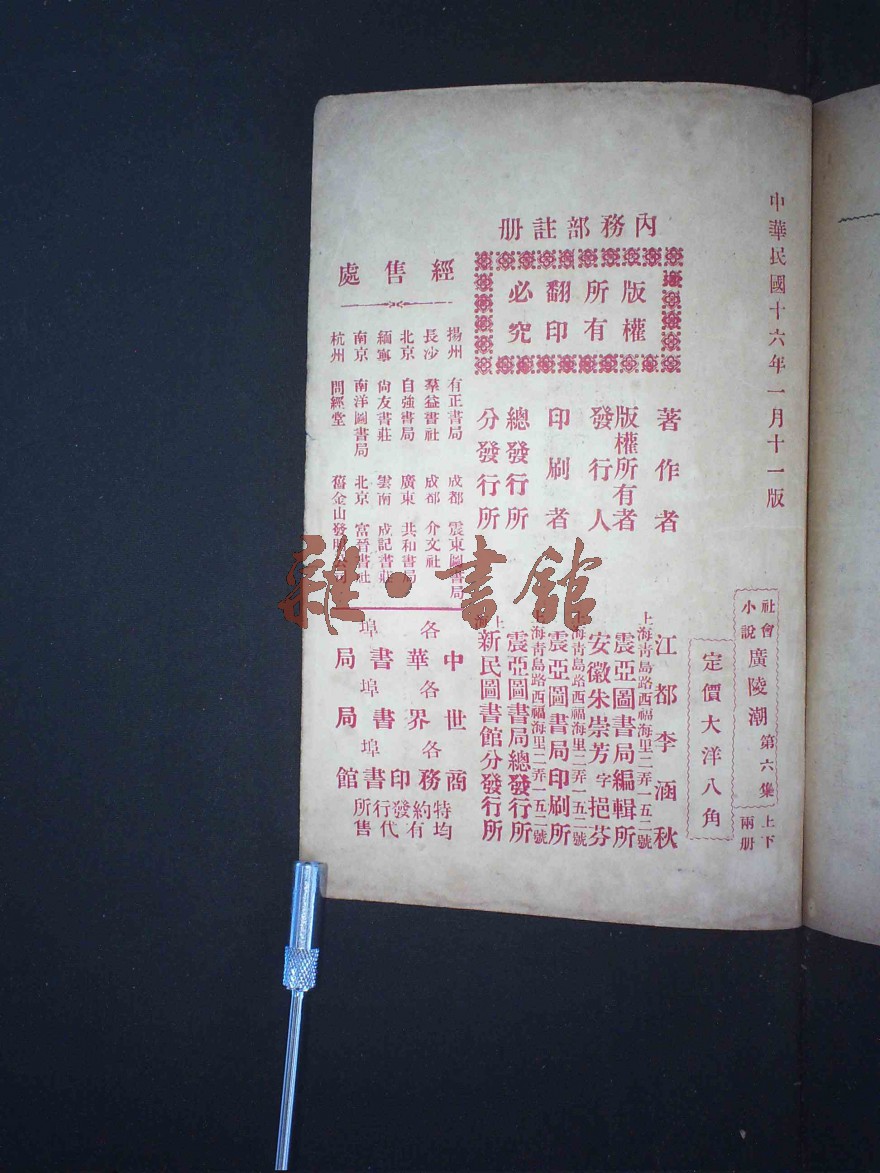 中華民國十六年一月十一版
社會小說 廣陵潮 第六集 上下兩册
定價大洋八角
內務部註册
版權所有翻印必究
著作者 江都李涵秋
版權所有者 上海靑島路西福海里二弄一五二號 震亞圖書局編輯所
發行人 安徽朱崇芳字挹芬
印刷者 上海靑島路西福海里二弄一五二號 震亞圖書局印刷所
總發行所 上海靑島路西福海里二弄一五二號 震亞圖書局總發行所
分發行所 上海 新民圖書館分發行所
經售處
揚州 有正書局 成都 震東圖書局
長沙 羣益書社 成都 介文社
北京 自強書局 廣東 共和書局
緬寧 尙友書莊 雲南 成記書莊
南京 南洋圖書局 北京 富晉書社
杭州 問經堂 舊金山發明公司
各埠中華書局
各埠世界書局
各埠商務印書館
特約發行所
均有代售
雜·書館